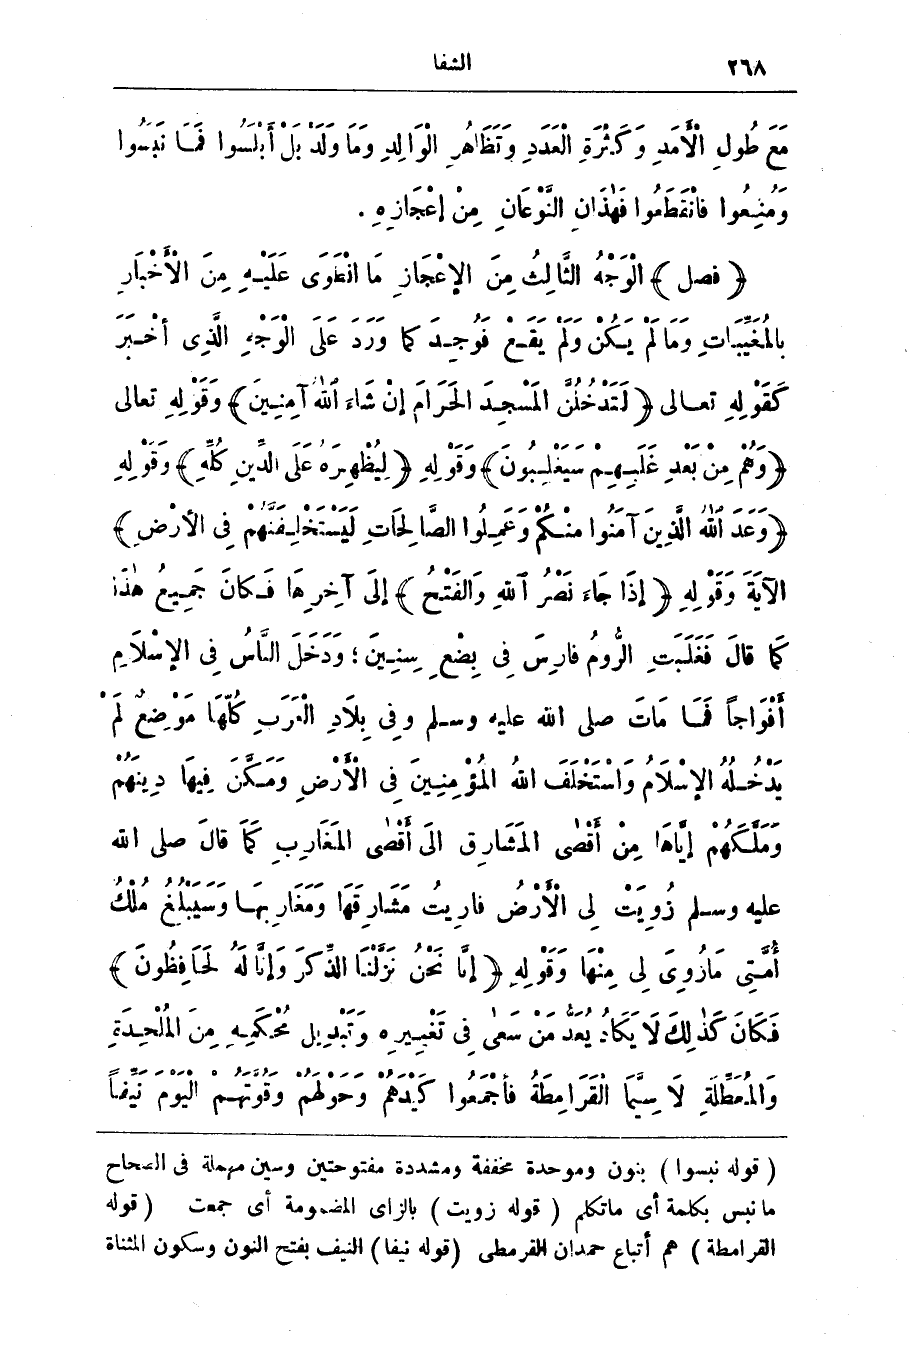 ٢٦٨
الشفا
مَعَ طُولِ الْأَمَدِ وَكَثْرَةِ الْعَدَدِ وَتَظَاهُرِ الْوَالِدِ وَمَا وَلَدَ بَلْ أَبْلَسُوا فَمَا نَبَسُوا
وَمُنِعُوا فَانْقَطَعُوا فَهٰذَانِ النَّوْعَانِ مِنْ إِعْجَازِهِ .
﴿ فصل ﴾ الْوَجْهُ الثَّالِثُ مِنَ الإِعْجَازِ مَا انْطَوَى عَلَيْهِ مِنَ الْأَخْبَارِ
بِالْمُغَيَّبَاتِ وَمَا لَمْ يَكُنْ وَلَمْ يَقَعْ فَوُجِدَ كَمَا وَرَدَ عَلَى الْوَجْهِ الَّذِى أَخْبَرَ
كَقَوْلِهِ تعالى ﴿ لَتَدْخُلُنَّ الْمَسْجِدَ الْحَرَامَ إِنْ شَاءَ اللهُ آمِنِينَ ﴾ وَقَوْلِهِ تعالى
﴿ وَهُمْ مِنْ بَعْدِ غَلَبِهِمْ سَيَغْلِبُونَ ﴾ وَقَوْلِهِ ﴿ لِيُظْهِرَهُ عَلَى الدِّينِ كُلِّهِ ﴾ وَقَوْلِهِ
﴿ وَعَدَ اللهُ الَّذِينَ آمَنُوا مِنْكُمْ وَعَمِلُوا الصَّالِحَاتِ لَيَسْتَخْلِفَنَّهُمْ فِى الأَرْضِ ﴾
الآيَةَ وَقَوْلِهِ ﴿ إِذَا جَاءَ نَصْرُ اللهِ وَالْفَتْحُ ﴾ إِلَى آخِرِهَا فَكَانَ جَمِيعُ هٰذَا
كَمَا قَالَ فَغَلَبَتِ الرُّومُ فَارِسَ فِى بِضْعِ سِنِينَ ؛ وَدَخَلَ النَّاسُ فِى الإِسْلَامِ
أَفْوَاجاً فَمَا مَاتَ صلى الله عليه وسلم وفِى بِلَادِ الْعَرَبِ كُلِّهَا مَوْضِعٌ لَمْ
يَدْخُلْهُ الإِسْلَامُ وَاسْتَخْلَفَ اللهُ الْمُؤْمِنِينَ فِى الْأَرْضِ وَمَكَّنَ فِيهَا دِينَهُمْ
وَمَلَّكَهُمْ إِيَّاهَا مِنْ أَقْصٰى الْمَشَارِقِ الَى أَقْصٰى الْمَغَارِبِ كَمَا قَالَ صلى الله
عليه وسلم زُوِيَتْ لِى الْأَرْضُ فَأُرِيتُ مَشَارِقَهَا وَمَغَارِبَهَا وَسَيَبْلُغُ مُلْكُ
أُمَّتِى مَا زُوِىَ لِى مِنْهَا وَقَوْلِهِ ﴿ إِنَّا نَحْنُ نَزَّلْنَا الذِّكْرَ وَإِنَّا لَهُ لَحَافِظُونَ ﴾
فَكَانَ كَذٰلِكَ لَا يَكَادُ يُعَدُّ مَنْ سَعٰى فِى تَغْيِيرِهِ وَتَبْدِيلِ مُحْكَمِهِ مِنَ الْمُلْحِدَةِ
وَالْمُعَطِّلَةِ لَا سِيَّمَا الْقَرَامِطَةُ فَأَجْمَعُوا كَيْدَهُمْ وَحَوْلَهُمْ وَقُوَّتَهُمْ الْيَوْمَ نَيِّفاً
( قوله نبسوا ) بنون وموحدة مخففة ومشددة مفتوحتين وسين مهملة فى الصحاح
مانبس بكلمة أى ماتكلم ( قوله زويت ) بالزاى المضمومة أى جمعت ( قوله
القرامطة ) هم أتباع حمدان القرمطى ( قوله نيفا ) النيف بفتح النون وسكون المثناة